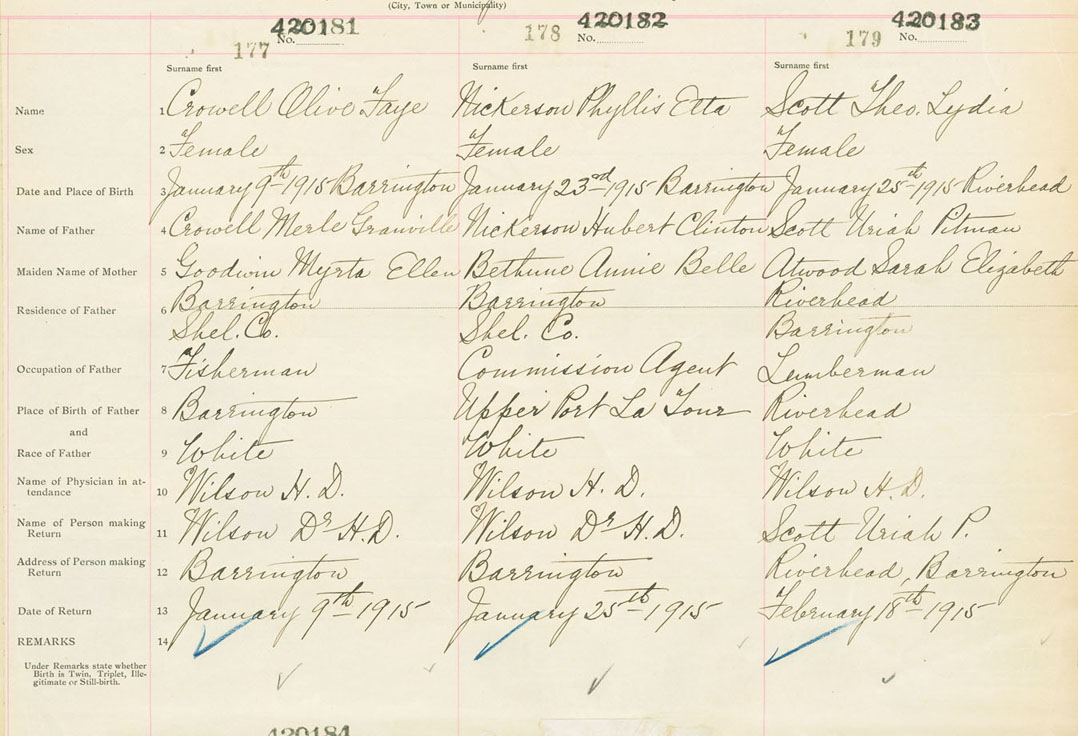 (City, Town or Municipality)
420181 420182 420183
177 No. 178 No. 179 No.
Surname first Surname first Surname first
Name 1 Crowell Olive Faye Nickerson Phyllis Etta Scott Theo. Lydia
Sex 2 Female Female Female
Date and Place of Birth 3 January 9th 1915 Barrington January 23rd 1915 Barrington January 25th 1915 Riverhead
Name of Father 4 Crowell Merle Granville Nickerson Hubert Clinton Scott Uriah Pitman
Maiden Name of Mother 5 Goodwin Myrta Ellen Bethune Annie Belle Atwood Sarah Elizabeth
Residence of Father 6 Barrington Barrington Riverhead
Shel. Co. Shel. Co. Barrington
Occupation of Father 7 Fisherman Commission Agent Lumberman
Place of Birth of Father 8 Barrington Upper Port La Tour Riverhead
and
Race of Father 9 White White White
Name of Physician in at-
tendance 10 Wilson H. D. Wilson H. D. Wilson H. D.
Name of Person making
Return 11 Wilson Dr H. D. Wilson Dr H. D. Scott Uriah P.
Address of Person making
Return 12 Barrington Barrington Riverhead, Barrington
Date of Return 13 January 9th 1915 January 25th 1915 February 18th 1915
REMARKS 14
Under Remarks state whether
Birth is Twin, Triplet, Ille-
gitimate or Still-birth.
420184